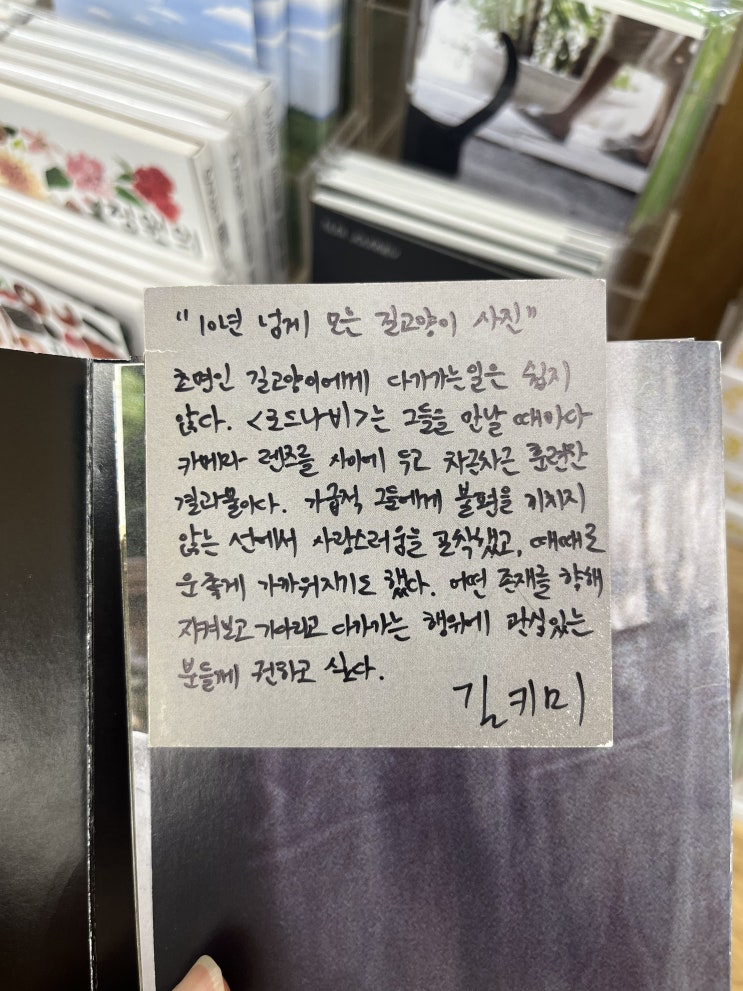 정원의
"10년 넘게 모은 길고양이 사진"
초면인 길고양이에게 다가가는일은 쉽지
않다. <로드나비>는 그들을 만날 때마다
카메라 렌즈를 사이에 두고 차근차근 훈련한
결과물이다. 가급적 그들에게 불편을 끼치지
않는 선에서 사랑스러움을 포착했고, 때때로
운좋게 가까워지기도 했다. 어떤 존재를 향해
지켜보고 기다리고 다가가는 행위에 관심있는
분들께 권하고 싶다.
김키미